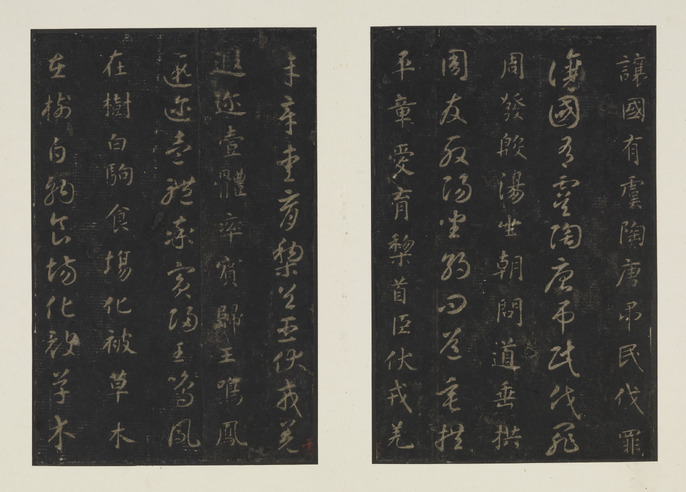 讓國有虞陶唐弔民伐罪
讓國有虞陶唐弔民伐罪
周發殷湯坐朝問道垂拱
周發殷湯坐朝問道垂拱
平章愛育黎首臣伏戎羌
平章愛育黎首臣伏戎羌
遐迩壹體率賓歸王鳴鳳
遐迩壹體率賓歸王鳴鳳
在樹白駒食場化被草木
在樹白駒食場化被草木